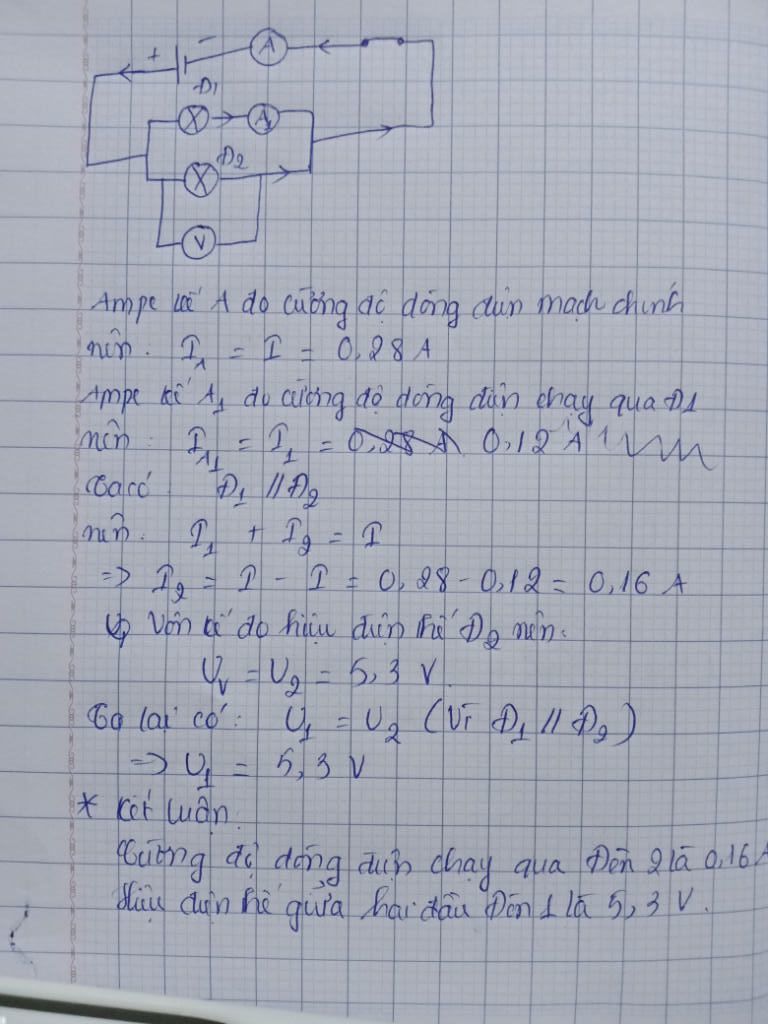 + - A
Đ1
X A1
Đ2
X
V
Ampe kế A đo cường độ dòng điện mạch chính
nên: I_A = I = 0,28 A
Ampe kế A1 đo cường độ dòng điện chạy qua Đ1
nên: I_A1 = I1 = 0,28 A 0,12 A
Ta có Đ1 // Đ2
nên: I1 + I2 = I
=> I2 = I - I = 0,28 - 0,12 = 0,16 A
Vôn kế đo hiệu điện thế Đ2 nên:
U_V = U2 = 5,3 V.
Ta lại có: U1 = U2 (Vì Đ1 // Đ2)
=> U1 = 5,3 V
* Kết luận.
Cường độ dòng điện chạy qua Đèn 2 là 0,16 A
Hiệu điện thế giữa hai đầu Đèn 1 là 5,3 V.